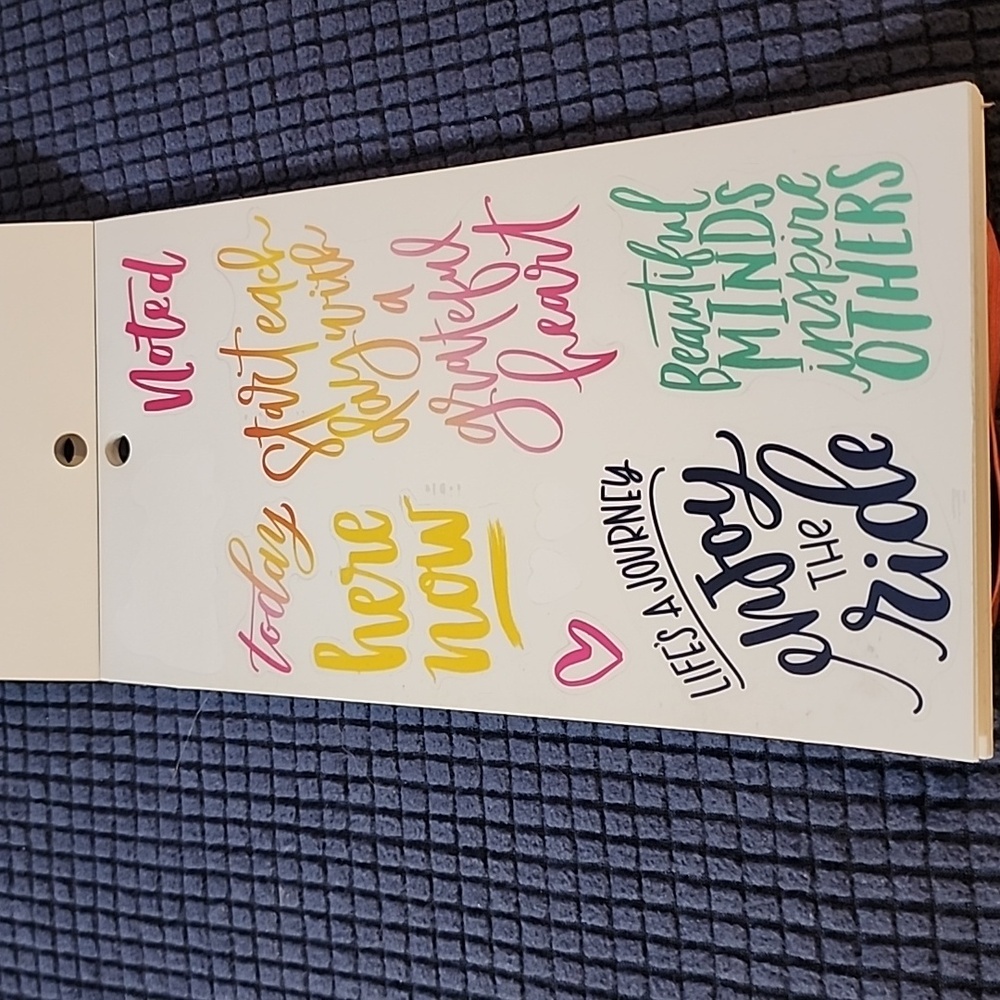 Noted
today
start each
day with
a
grateful
heart
here
now
LIFE'S A JOURNEY
enjoy
THE
ride
Beautiful
MINDS
inspire
OTHERS